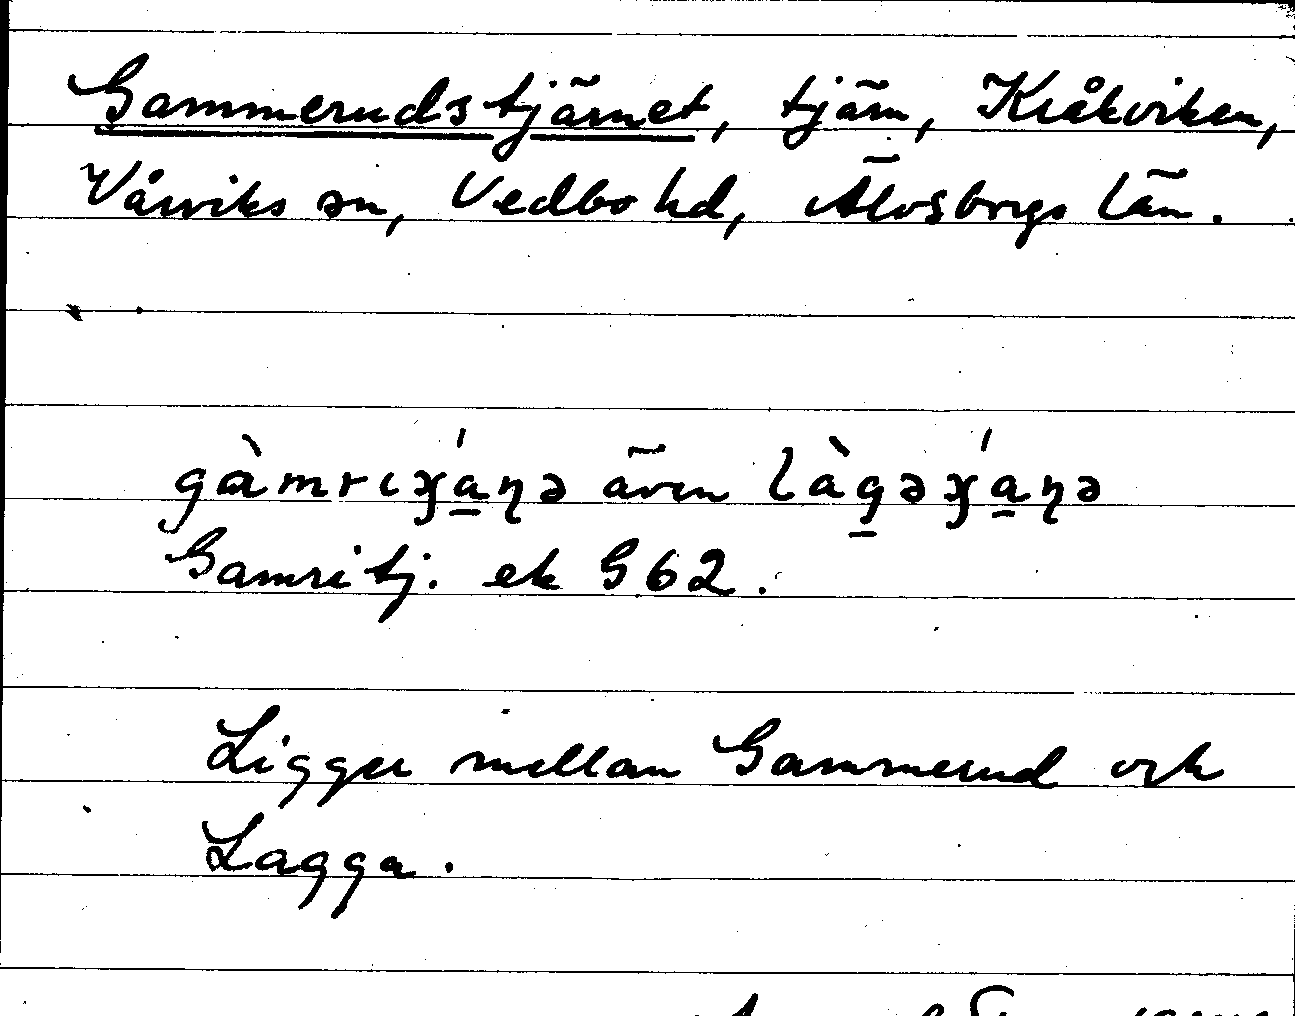 Gammerudstjärnet, tjärn, Kråkviken,
Vårviks sn, Vedbo hd, Älvsborgs län.
gàmrɩɣ́a̲ŋə även làg̲əɣ́a̲ŋə
Gamritj. ek G62.
Ligger mellan Gammerud och
Lagga.